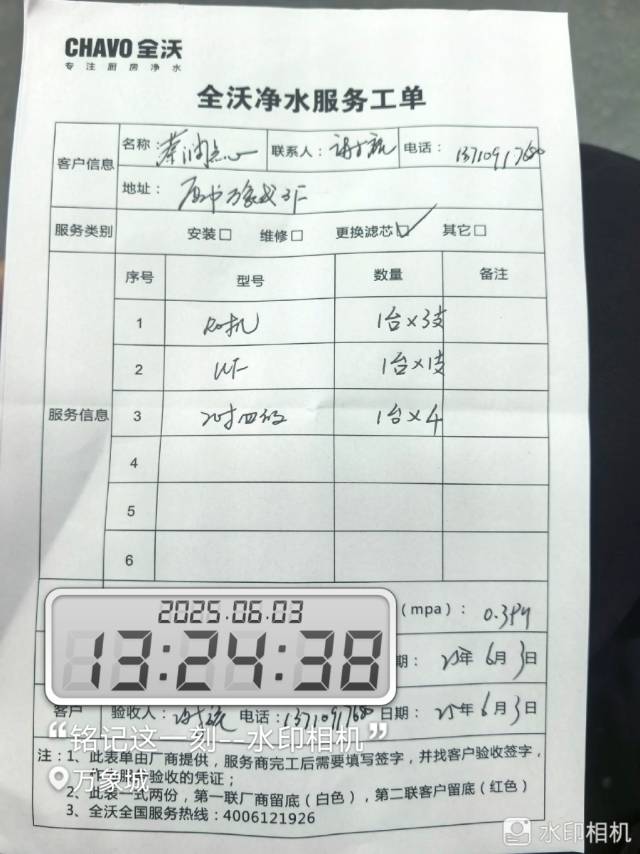 CHAVO 全沃
专注厨房净水
全沃净水服务工单
客户信息 名称： 点心 联系人： 电话：
地址： 万象城
服务类别 安装□ 维修□ 更换滤芯☑ 其它□
服务信息 序号 型号 数量 备注
1 RO机 1台×3支
2 UF 1台×1支
3 20寸四级 1台×4
4
5
6
（mpa）：
2025.06.03
13:24:38
期： 25年6月3日
客户 验收人： 电话： 日期：25年6月3日
“铭记这一刻－水印相机”
注：1、此表单由厂商提供，服务商完工后需要填写签字，并找客户验收签字，
验收的凭证；
万象城
2、此表一式两份，第一联厂商留底（白色），第二联客户留底（红色）
3、全沃全国服务热线：4006121926
水印相机